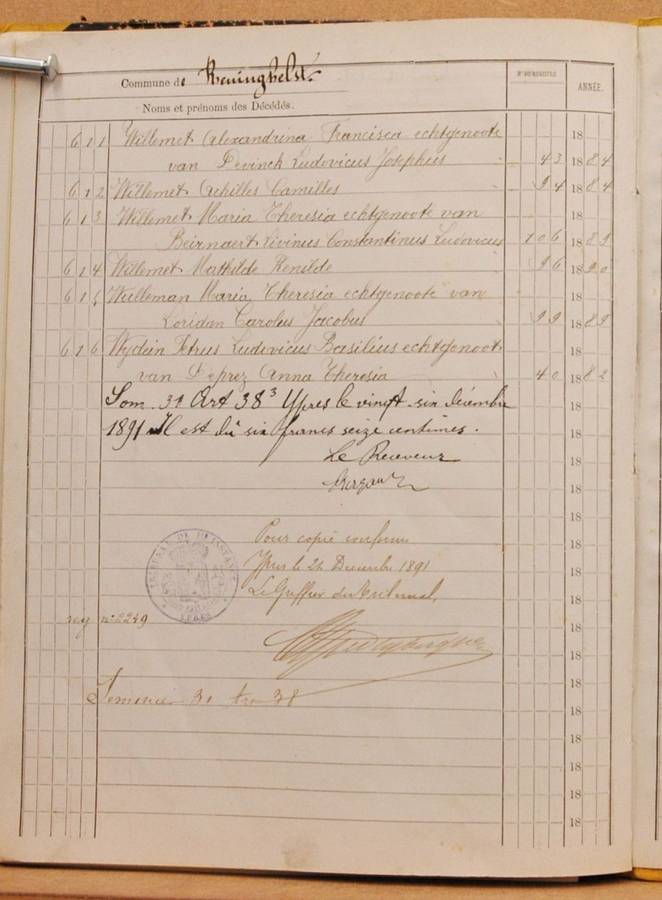 Commune de Reninghelst
Nº DU REGISTRE
ANNÉE.
Noms et prénoms des Décédés.
611 Willemet Alexandrina Francisca echtgenoote 18
van Devinck Ludovicus Josephus 43 1884
612 Willemet Achilles Camilles 94 1884
613 Willemet Maria Theresia echtgenoote van 18
Beirnaert Livinus Constantinus Ludovicus 106 1889
614 Willemet Mathilde Renilde 96 1890
615 Wulleman Maria Theresia echtgenoote van 18
Loridan Carolus Jacobus 99 1889
616 Wydein Petrus Ludovicus Basilius echtgenoot 18
van Deprez Anna Theresia 40 1882
Som. 31 Art 38³ Ypres le vingt-six décembre 18
1891 Il est dû six francs seize centimes. 18
Le Receveur 18
18
18
Pour copie conforme 18
Ypres le 26 Decembre 1891 18
Le Greffier du Tribunal, 18
TRIBUNAL DE 1E INSTANCE
YPRES
reg nº 2249 18
18
18
31 38 18
18
18
18
18